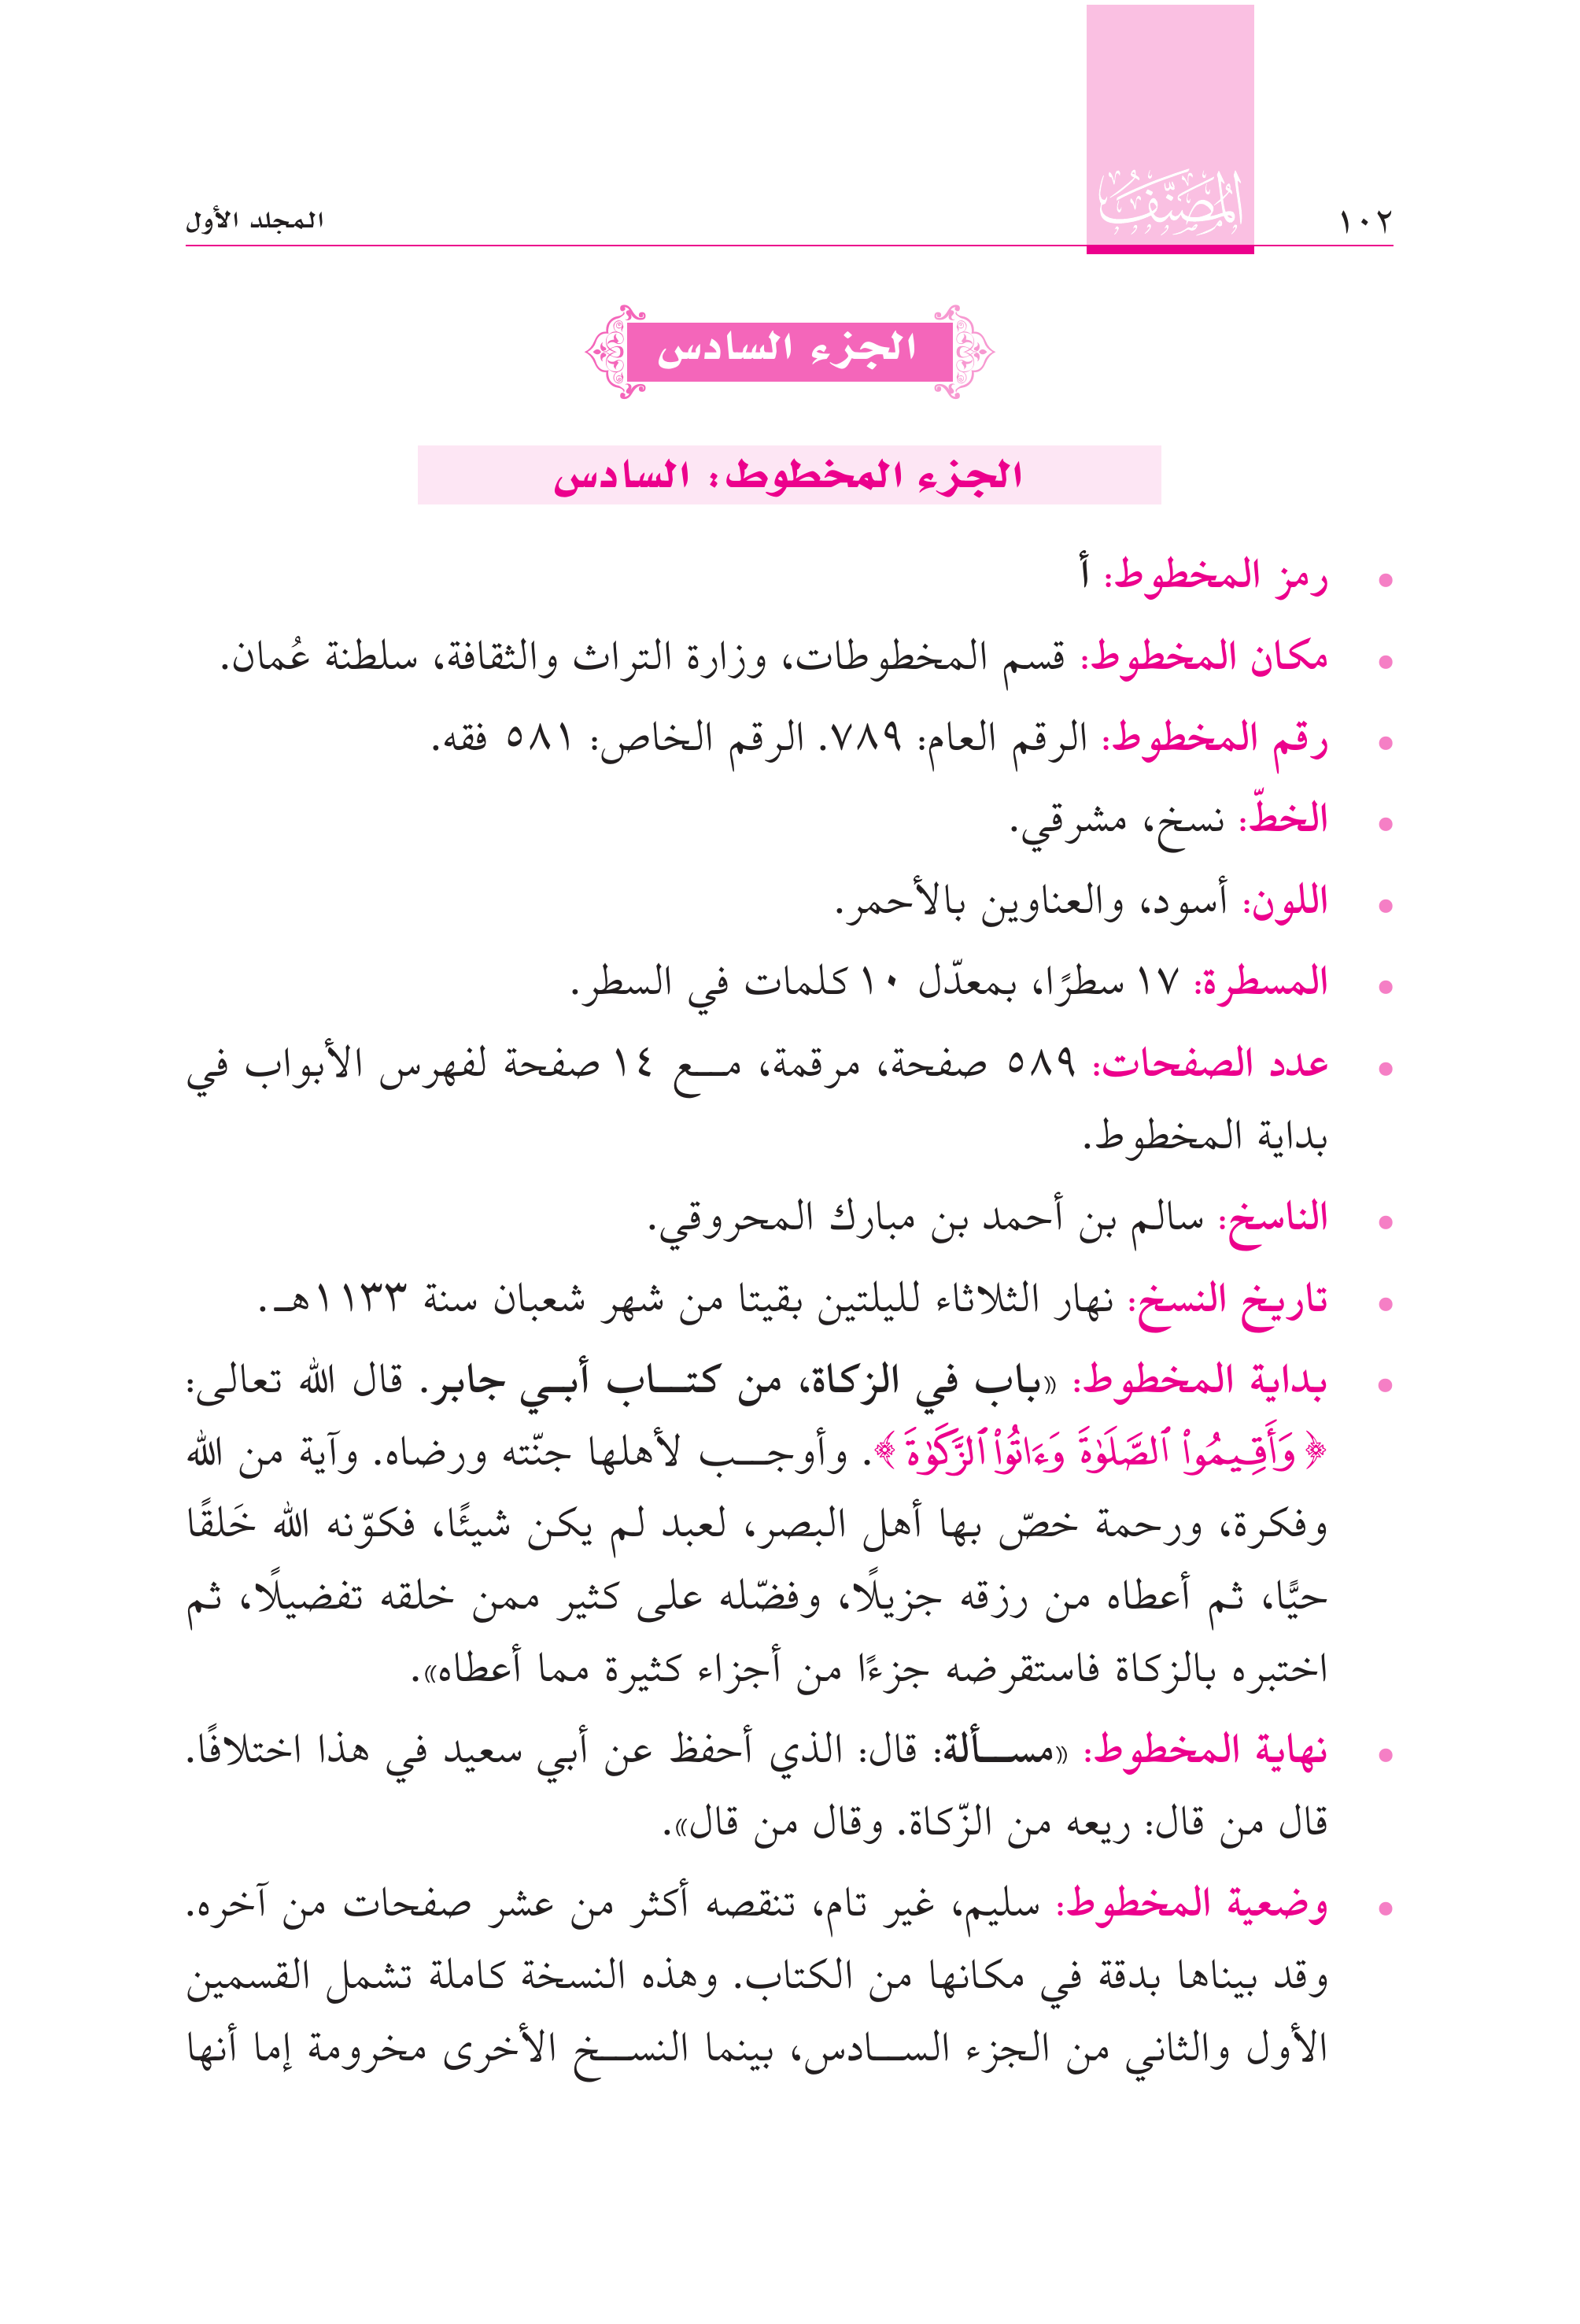 ١٠٢
المُصَنَّف
المجلد الأول
الجزء السادس
الجزء المخطوط: السادس
• رمز المخطوط: أ
• مكان المخطوط: قسم المخطوطات، وزارة التراث والثقافة، سلطنة عُمان.
• رقم المخطوط: الرقم العام: ٧٨٩. الرقم الخاص: ٥٨١ فقه.
• الخطّ: نسخ، مشرقي.
• اللون: أسود، والعناوين بالأحمر.
• المسطرة: ١٧ سطرًا، بمعدّل ١٠ كلمات في السطر.
• عدد الصفحات: ٥٨٩ صفحة، مرقمة، مـــع ١٤ صفحة لفهرس الأبواب في
بداية المخطوط.
• الناسخ: سالم بن أحمد بن مبارك المحروقي.
• تاريخ النسخ: نهار الثلاثاء لليلتين بقيتا من شهر شعبان سنة ١١٣٣هـ.
• بداية المخطوط: «باب في الزكاة، من كتـــاب أبـي جابر. قال الله تعالى:
﴿وَأَقِيمُوا۟ ٱلصَّلَوٰةَ وَءَاتُوا۟ ٱلزَّكَوٰةَ﴾. وأوجـــب لأهلها جنّته ورضاه. وآية من الله
وفكرة، ورحمة خصّ بها أهل البصر، لعبد لم يكن شيئًا، فكوّنه الله خَلقًا
حيًّا، ثم أعطاه من رزقه جزيلًا، وفضّله على كثير ممن خلقه تفضيلًا، ثم
اختبره بالزكاة فاستقرضه جزءًا من أجزاء كثيرة مما أعطاه».
• نهاية المخطوط: «مســـألة: قال: الذي أحفظ عن أبي سعيد في هذا اختلافًا.
قال من قال: ريعه من الزّكاة. وقال من قال».
• وضعية المخطوط: سليم، غير تام، تنقصه أكثر من عشر صفحات من آخره.
وقد بيناها بدقة في مكانها من الكتاب. وهذه النسخة كاملة تشمل القسمين
الأول والثاني من الجزء الســـادس، بينما النســـخ الأخرى مخرومة إما أنها